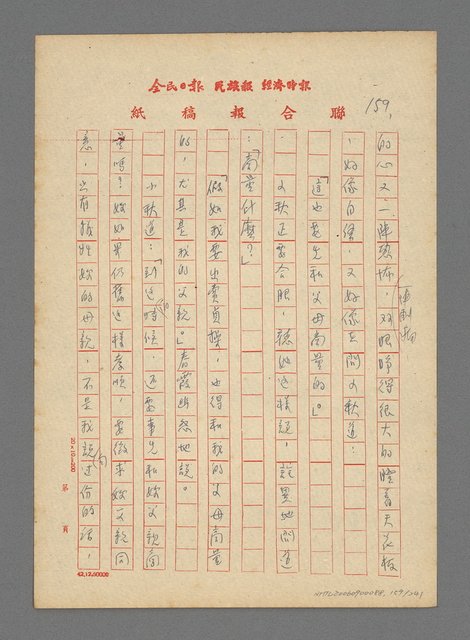 全民日報 民族報 經濟時報
聯合報稿紙
159.
的心又一陣恐怖,双眼睜得很大的瞪着天花板
,好像自語,又好像在問文軟道:
「這也要先私父母商量的」。
文秋正要合眼,聽她這樣說,詫異地問道
:「商量什麼?」
「假如我要出賣貞操,也得和我的父母商量
的,尤其是我的父親。」春霞幽怨地說。
小秋道:「到這時候,還要事先和妳父親商
量嗎?妳如果仍舊這樣孝順,要徵求妳父親同
意,出有犧牲妳的母親,不是我說過份的話,
的
20×10=200
第 頁
42.12.60000
NMTL20060900088, 159/241